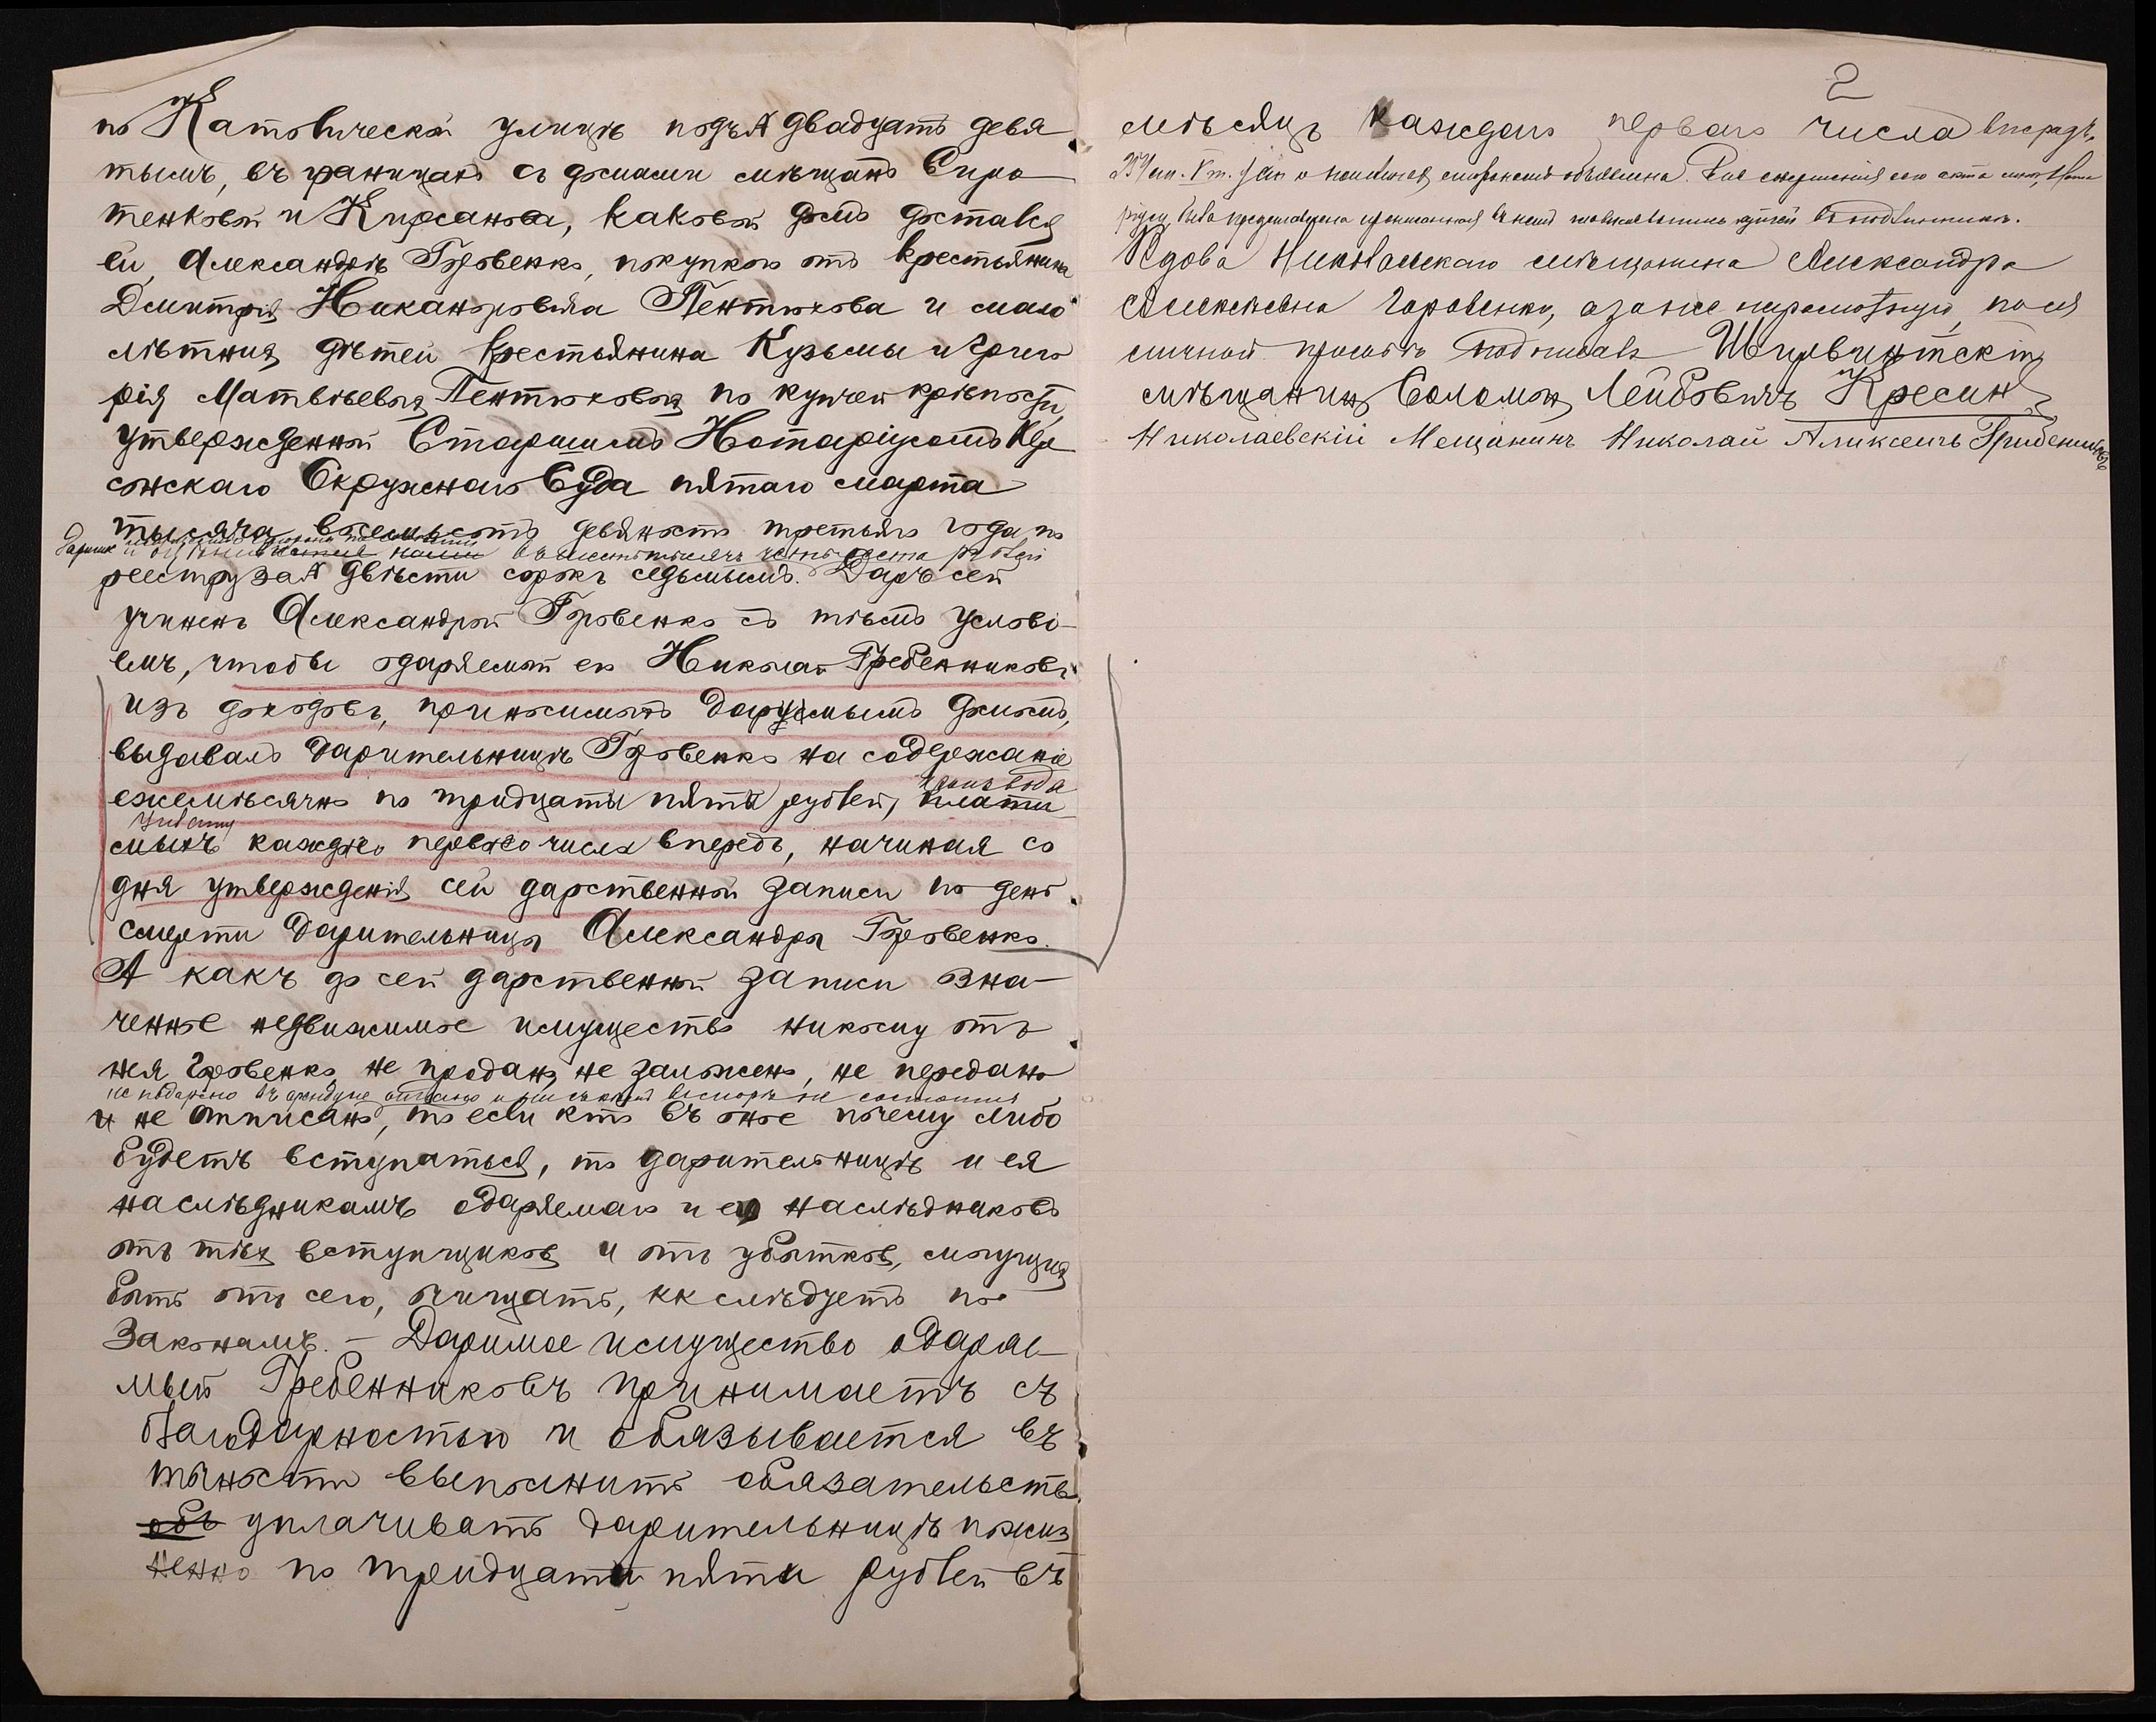 по Католической улицѣ подъ № двадцать девя
тымъ, въ границахъ съ домами мѣщанъ Сиро
тенковой и Кирсанова, каковой домъ достался
ей, Александрѣ Горовенко, покупкою отъ крестьянина
Дмитрія Никаноровича Пентюхова и мало
лѣтнихъ дѣтей крестьянина Кузьмы и Григо
рія Матвѣевыхъ Пентюховыхъ по купчей крѣпости,
утвержденной Старшимъ Нотаріусомъ Хер
сонскаго Окружнаго Суда пятаго марта
тысяча восемьсотъ девяносто третьяго года по
въ шесть тысячъ четыреста рублей
реестру за № двѣсти сорокъ седьмымъ. Даръ сей
учиненъ Александрой Горовенко съ тѣмъ услові
емъ, чтобы одаряемый ею Николай Гребенниковъ
изъ доходовъ, приносимыхъ даруемымъ домомъ,
выдавалъ дарительницѣ Горовенко на содержаніе
производя
ежемѣсячно по тридцати пяти рублей, плати
уплату
мыхъ каждаго перваго числа впередъ, начиная со
дня утвержденія сей дарственной записи по день
смерти дарительницы Александры Горовенко.
А какъ до сей дарственной записи озна
ченное недвижимое имущество никому отъ
нея Горовенко не продано, не заложено, не передано
не подарено въ аренду не отдано и ни въ какой въ споръ не состоитъ
и не отписано, то если кто въ оное почему либо
будетъ вступаться, то дарительницѣ и ея
наслѣдникамъ одаряемаго и его наслѣдниковъ
отъ тѣхъ вступщиковъ и отъ убытковъ, могущихъ
быть отъ сего, очищать, какъ слѣдуетъ по
Законамъ. — Даримое имущество одаряе
мый Гребенниковъ принимаетъ съ
благодарностью и обязывается въ
точности выполнить обязательство
объ уплачивать дарительницѣ пожиз
ненно по тридцати пяти рублей въ
2
мѣсяцъ каждаго перваго числа впередъ.
сторонамъ объявлена. сего акта мнѣ, Нота
ріусу, была
Вдова Николаевскаго мѣщанина Александра
Алексѣевна Горовенко, а за нее неграмотную, по ея
личной просьбѣ подписалъ Ширвинтскій
мѣщанинъ Соломонъ Лейбовичъ Кресинъ
Николаевскій Мещанинъ Николай Аликсеичъ Грибениковъ